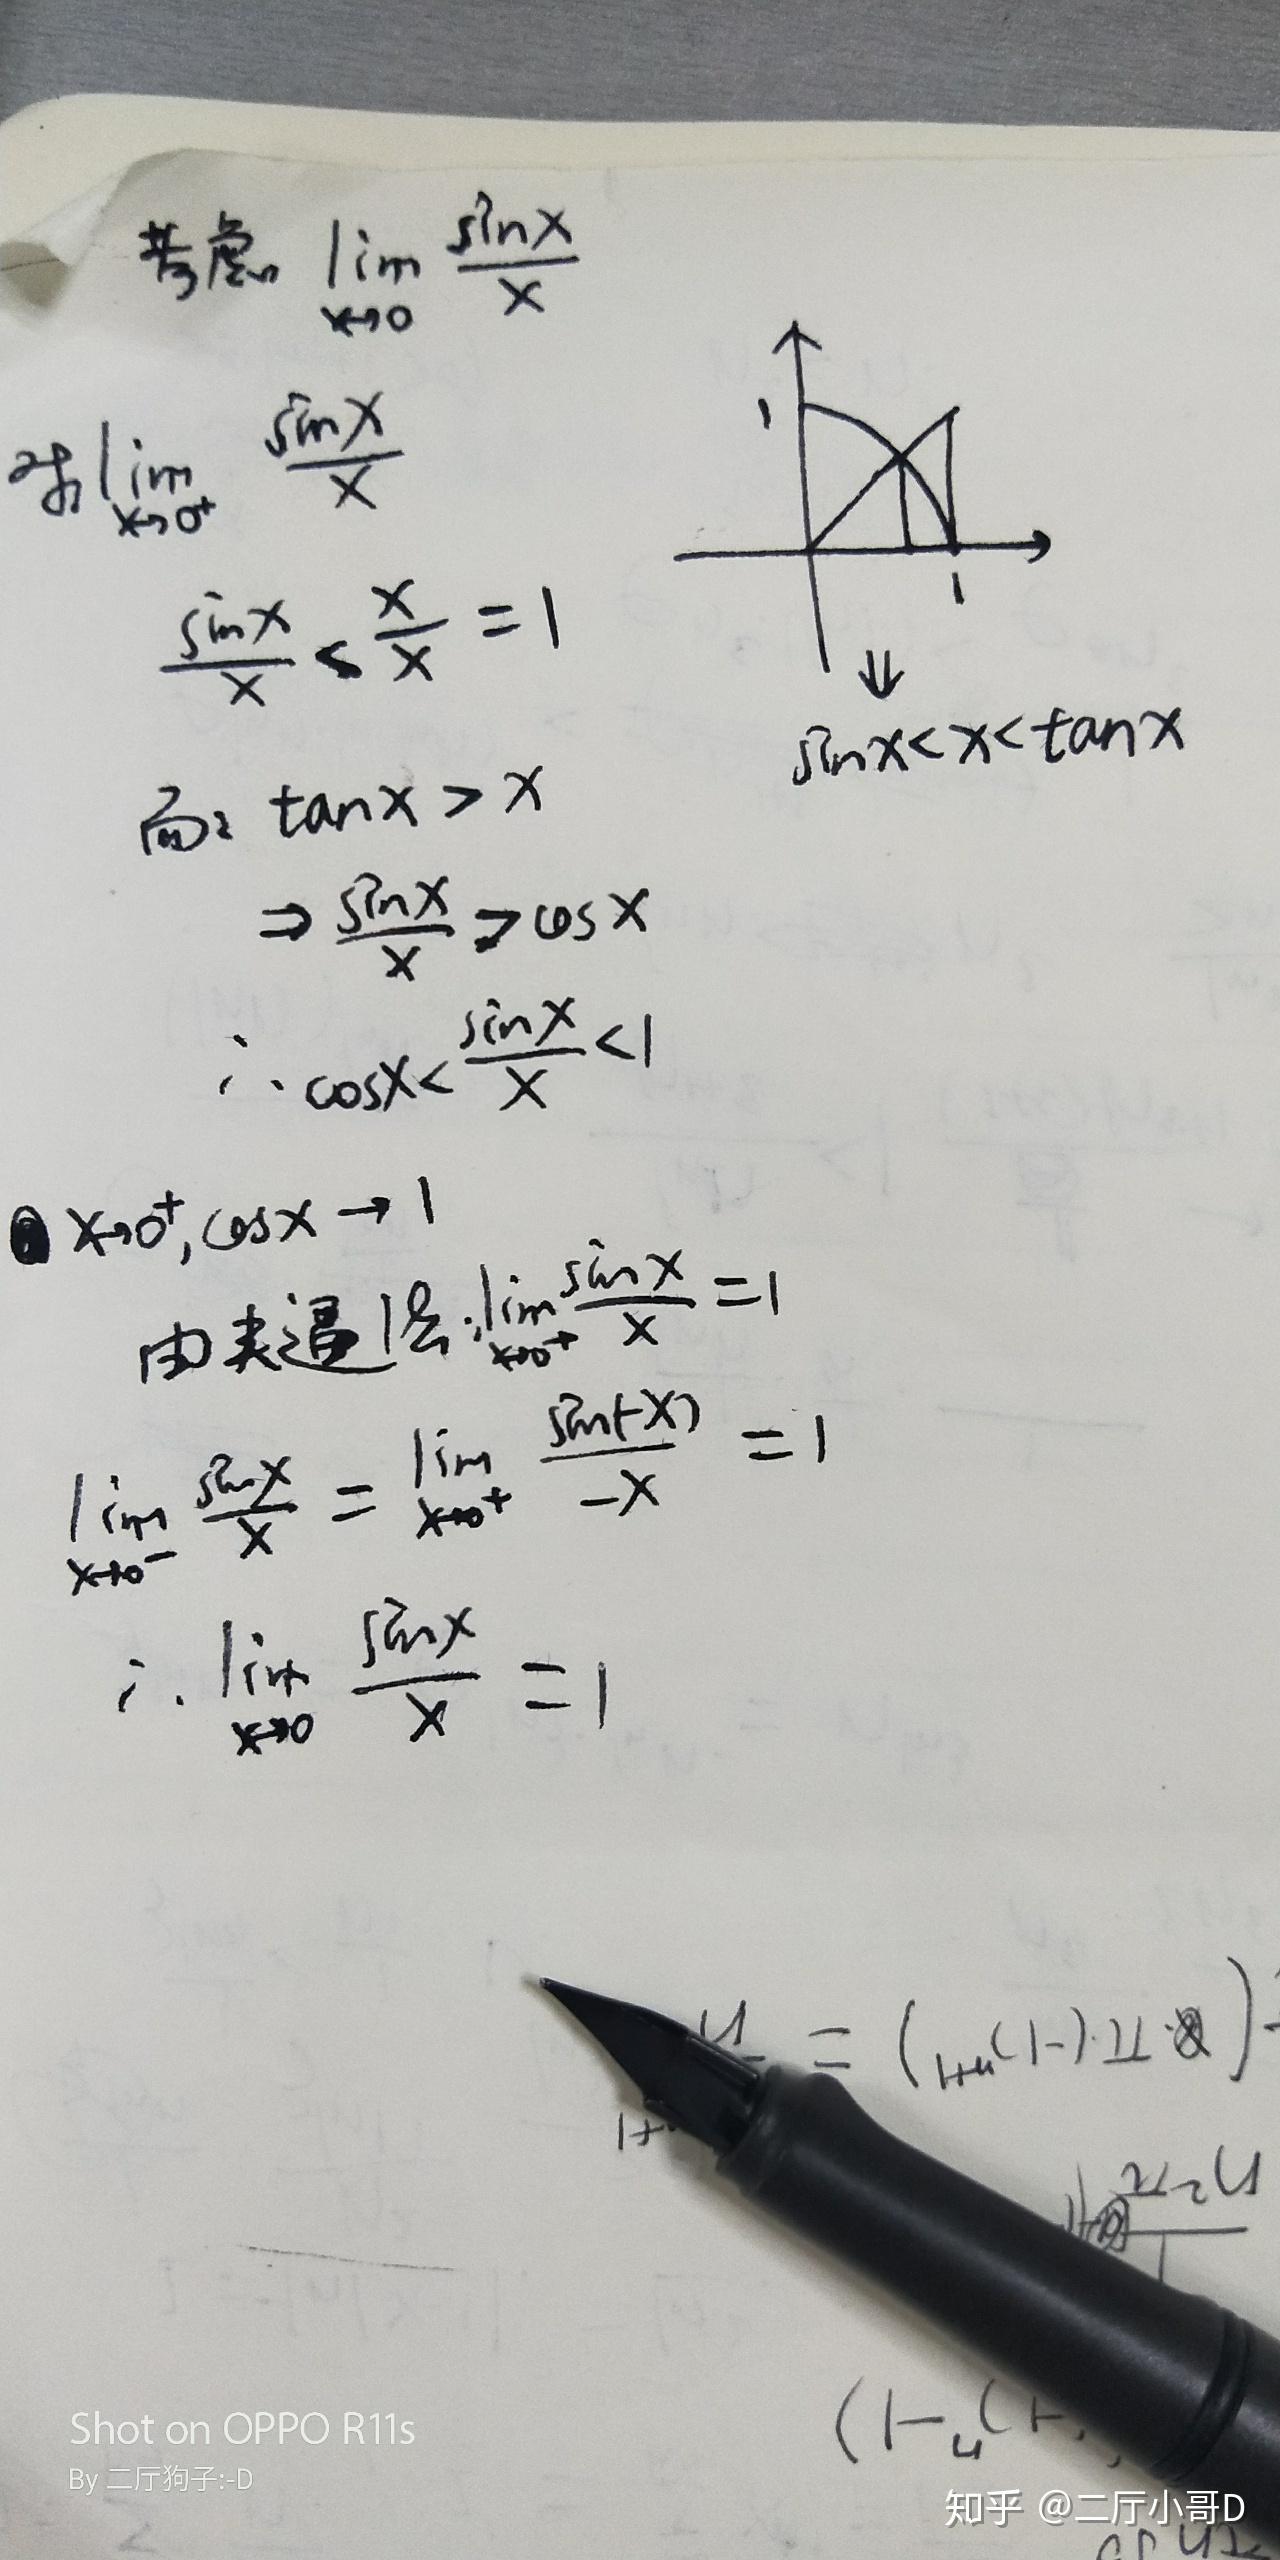 考虑 lim x→0 sinx/x
对 lim x→0⁺ sinx/x
1
1
sinx/x < x/x = 1
⇓
sinx < x < tanx
而: tanx > x
⇒ sinx/x > cosx
∴ cosx < sinx/x < 1
x→0⁺, cosx → 1
由夹逼准则: lim x→0⁺ sinx/x = 1
lim x→0⁻ sinx/x = lim x→0⁺ sin(-x)/-x = 1
∴ lim x→0 sinx/x = 1
Shot on OPPO R11s
By 二厅狗子:-D
知乎 @二厅小哥D